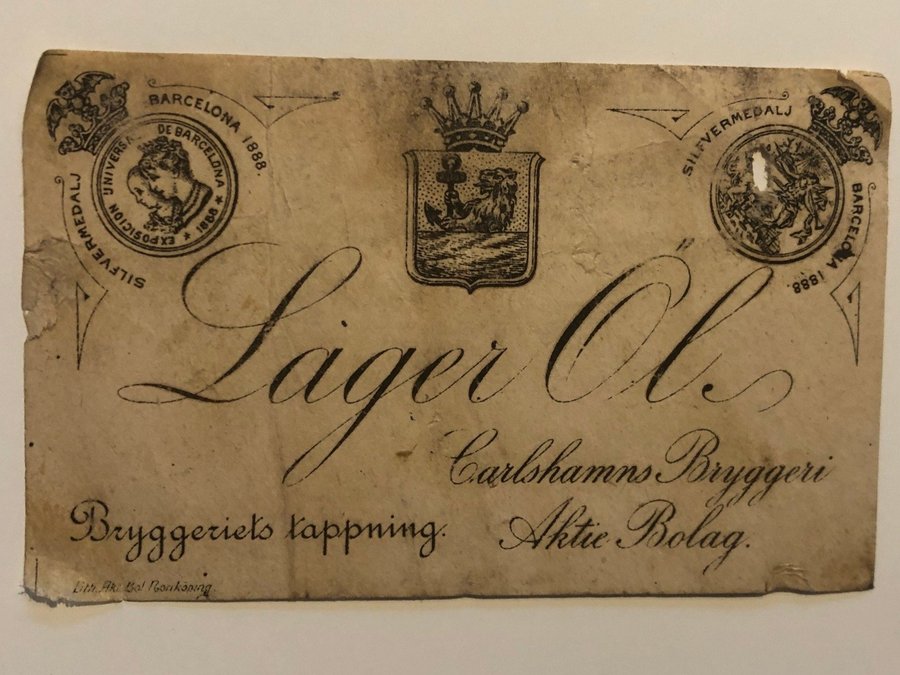 SILFVERMEDALJ BARCELONA 1888.
EXPOSICION UNIVERSAL DE BARCELONA * 1888 *
SILFVERMEDALJ BARCELONA 1888.
Lager Öl.
Carlshamns Bryggeri
Aktie Bolag.
Bryggeriets tappning.
Lith. Akt. Bol. Norrköping.